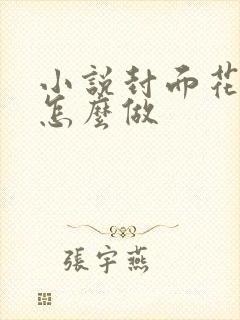 小說封面花
怎麼做
張宇燕